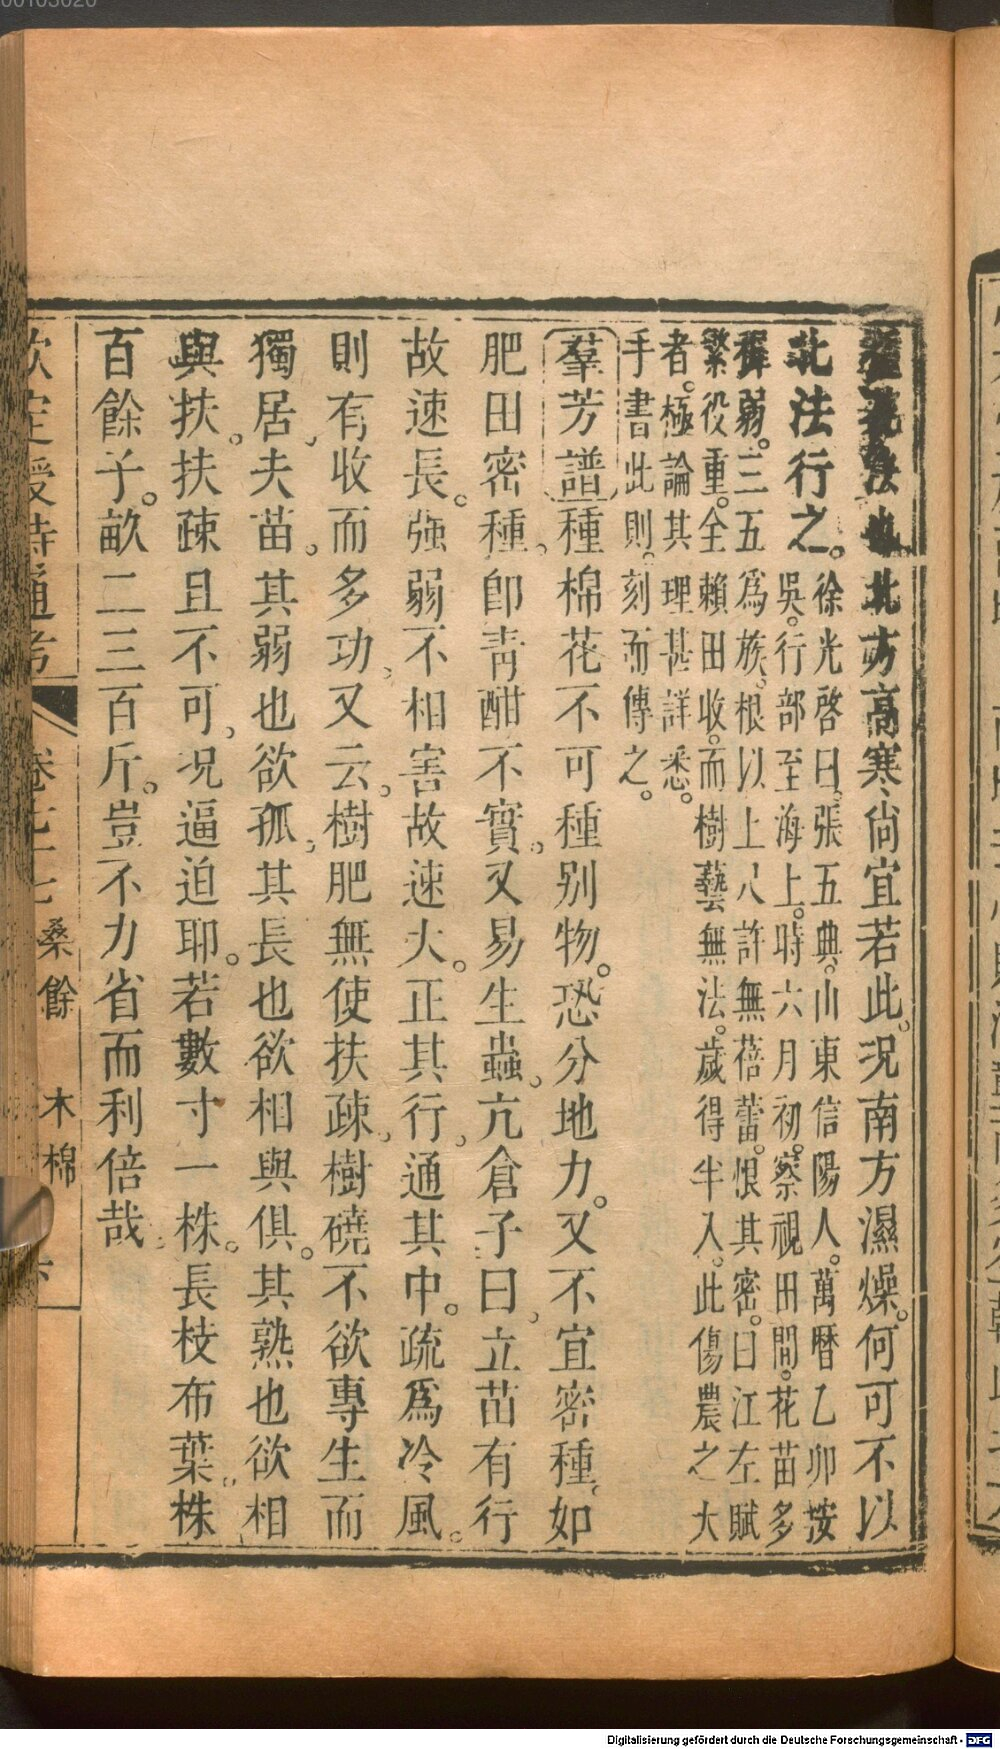 法也北方高寒尙宜若此。況南方濕燥。何可不以
北法行之。徐光啓曰。張五典。山東信陽人。萬曆乙卯按
吳。行部至海上。時六月初。察視田間。花苗多
穉弱。三五爲族。根以上八許無蓓蕾。恨其密。曰江左賦
繁役重。全賴田收。而樹藝無法。歲得半入。此傷農之大
者。極論其理甚詳悉。
手書此則。刻而傳之。
羣芳譜種棉花不可種別物。恐分地力。又不宜密種。如
肥田密種。卽靑酣不實。又易生蟲。亢倉子曰。立苗有行
故速長。强弱不相害故速大。正其行。通其中。疏爲冷風。
則有收而多功。又云。樹肥無使扶疎。樹磽不欲專生而
獨居。夫苗。其弱也欲孤。其長也欲相與俱。其熟也欲相
與扶。扶疎且不可。況逼迫耶。若數寸一株。長枝布葉。株
百餘子。畝二三百斤。豈不力省而利倍哉。
欽定授時通考 卷七十七 桑餘 木棉
00103020
Digitalisierung gefördert durch die Deutsche Forschungsgemeinschaft - DFG